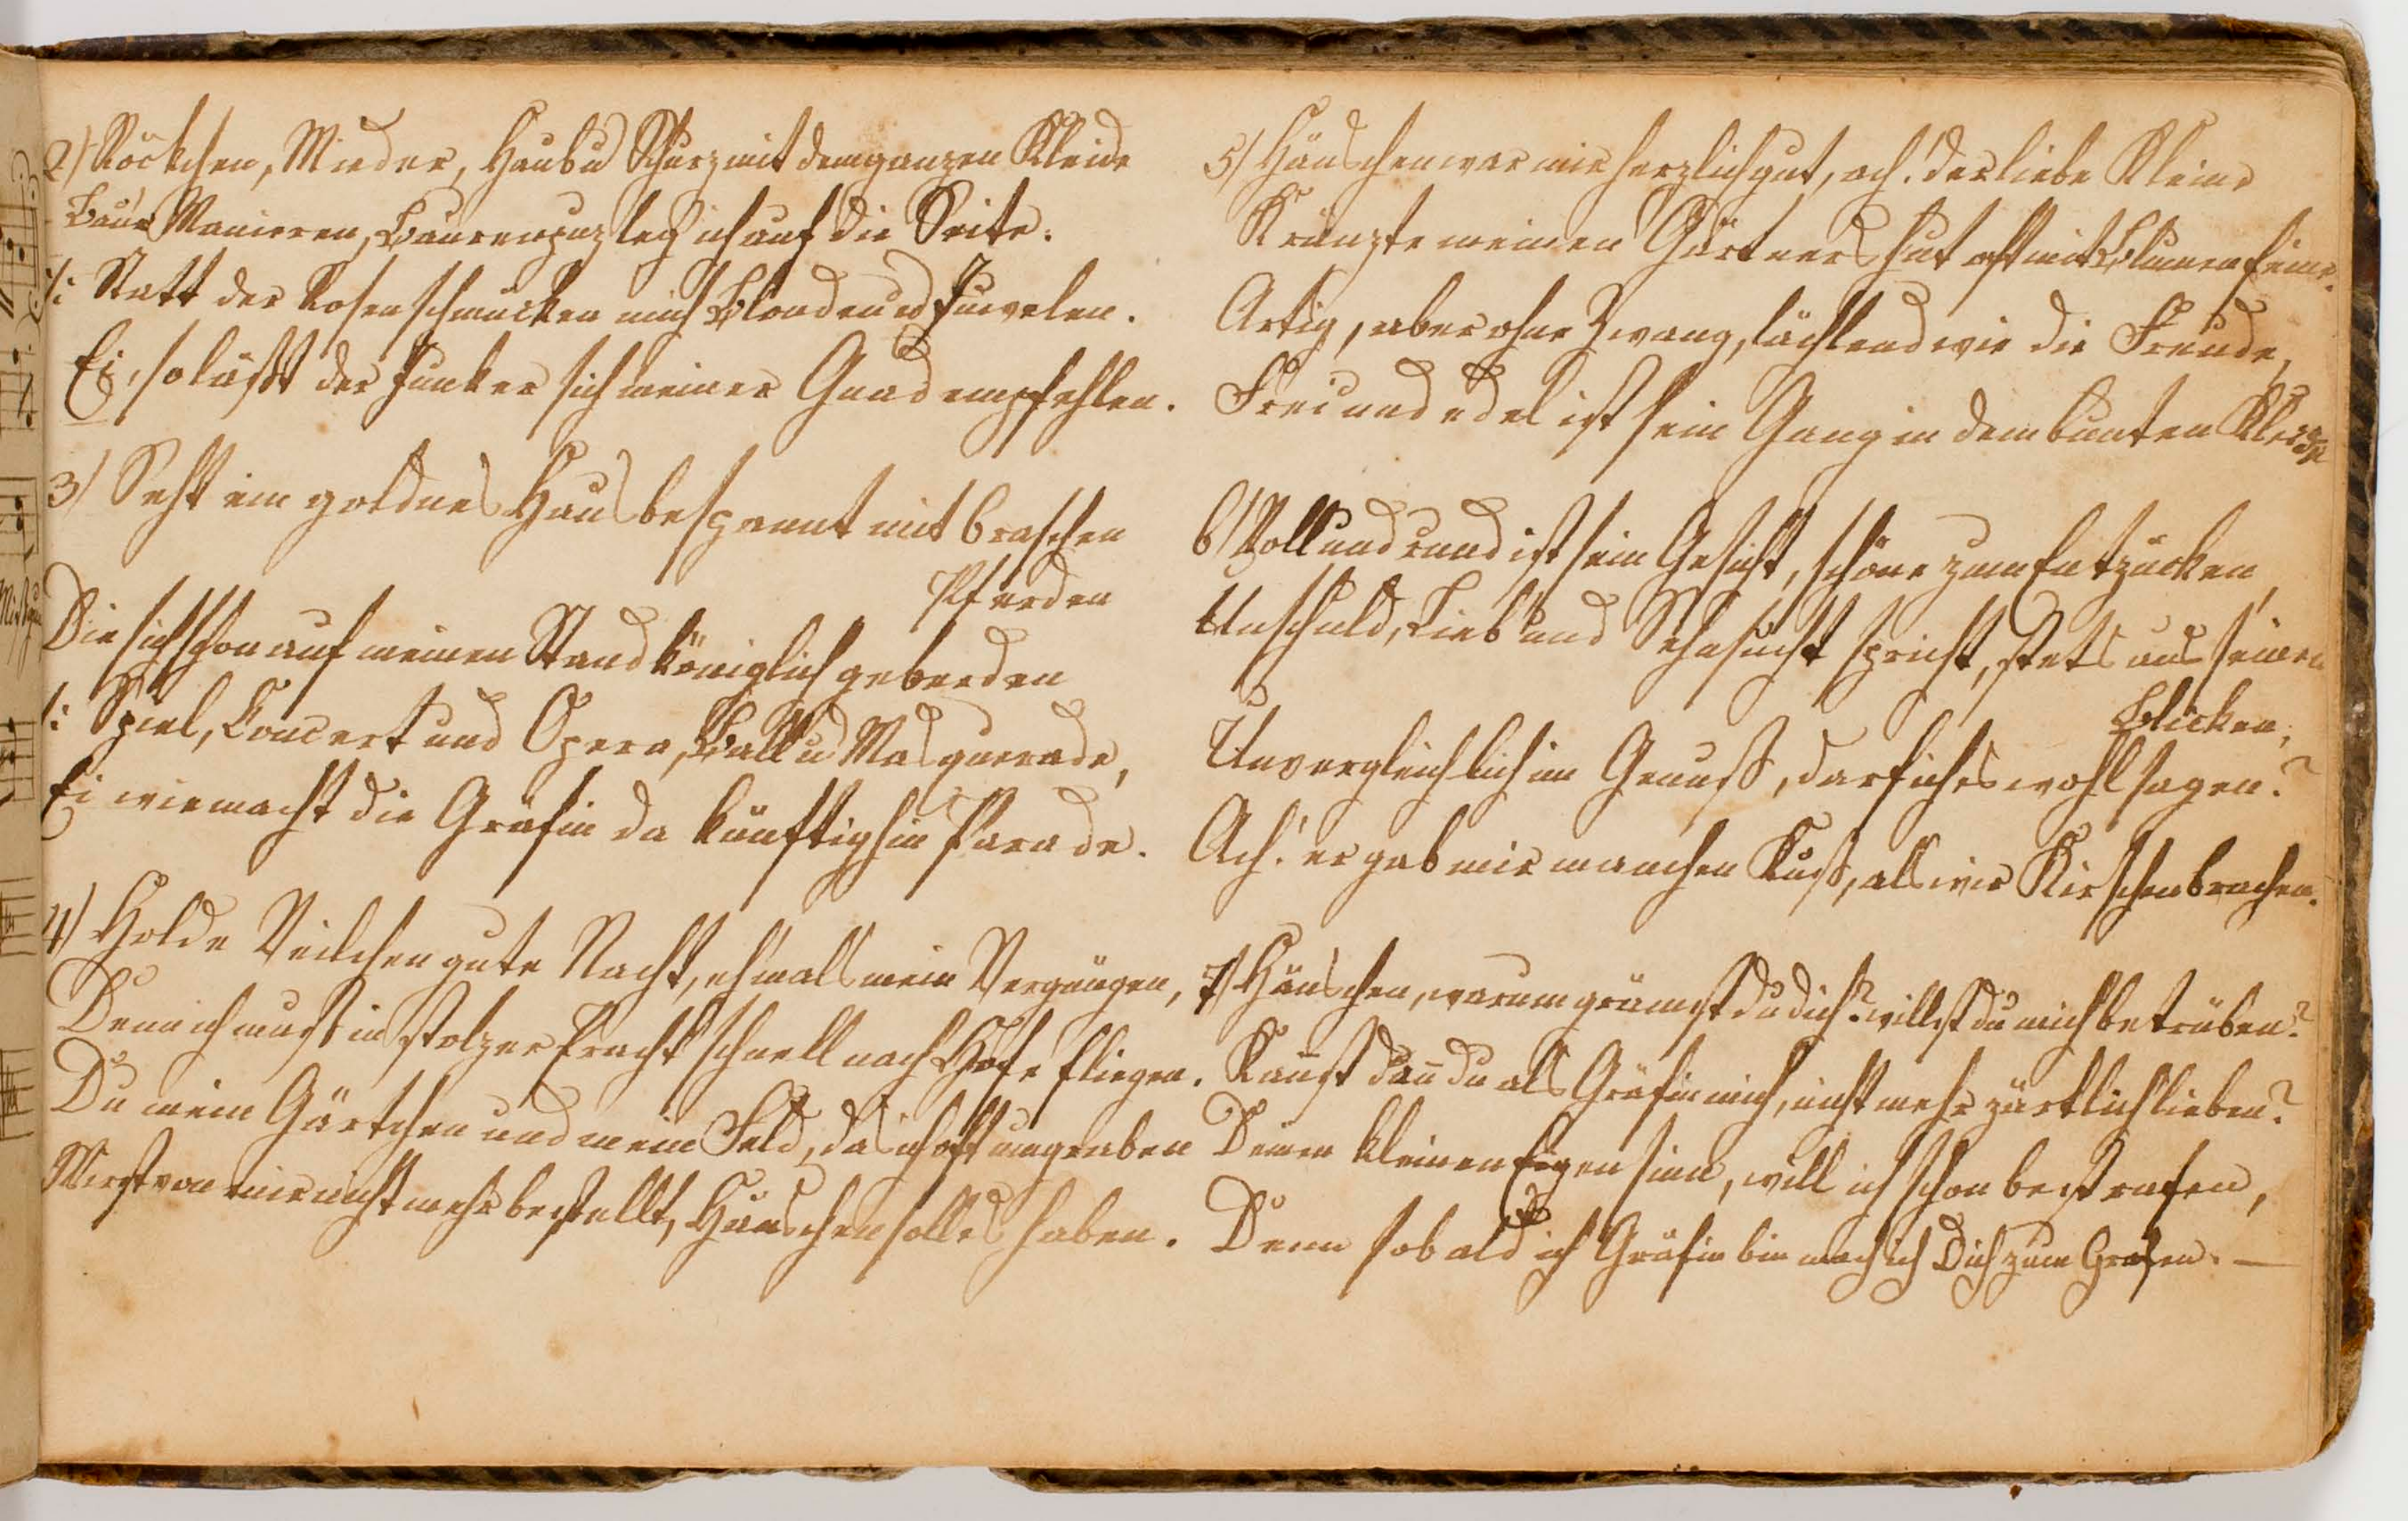 2) Röckchen, Mieder, Haub u Schurz mit dem ganzen Kleide
Baur Manieren, Baurenpuz leg ich auf die Seite.
/: Statt der Rosen schmücken mich Blonden u Juwelen.
Ei, so läßt der Junker sich meiner Gnad empfehlen.
3) Seht ein goldnes Haus bespannt mit 6 raschen
Pferden
Die sich schon auf meinen Stand königlich geberden
/: Spiel, Concert und Opera, Ball u Masquerade,
Ei wie macht die Gräfin da künftighin Parade.
4) Holde Veilchen gute Nacht, eh'mals mein Vergnügen,
Denn ich muß in stolzer Pracht schnell nach Hofe fliegen.
Du mein Gärtchen und mein Feld, das ich oft umgraben
Wirst von mir nicht mehr bestellt, Hänschen soll es haben.
5) Hänschen war mir herzlich gut, ach! der liebe Kleine
Kränzte meinen Gärtners hut oft mit Blumen feine.
Artig, aber ohne Zwang, lächlend wie die Freude,
Frei und edel ist sein Gang in dem bunten Kleide
6) Voll und rund ist sein Gesicht, schöne zum Entzücken,
Unschuld, Lieb und Sehnsucht spricht, stets aus seinen
Blicken;
Unvergleichlich im Genuß, darf ich es wohl sagen?
Ach! er gab mir manchen Kuß, als wir Kirschen brachen.
7) Hänschen, warum grämst du dich? willst du mich betrüben?
Kannst dann du als Gräfin mich, nicht mehr zärtlich lieben?
Deinen kleinen Eigensinn, will ich schon bestrafen,
Denn sobald ich Gräfin bin mach ich Dich zum Grafen. —